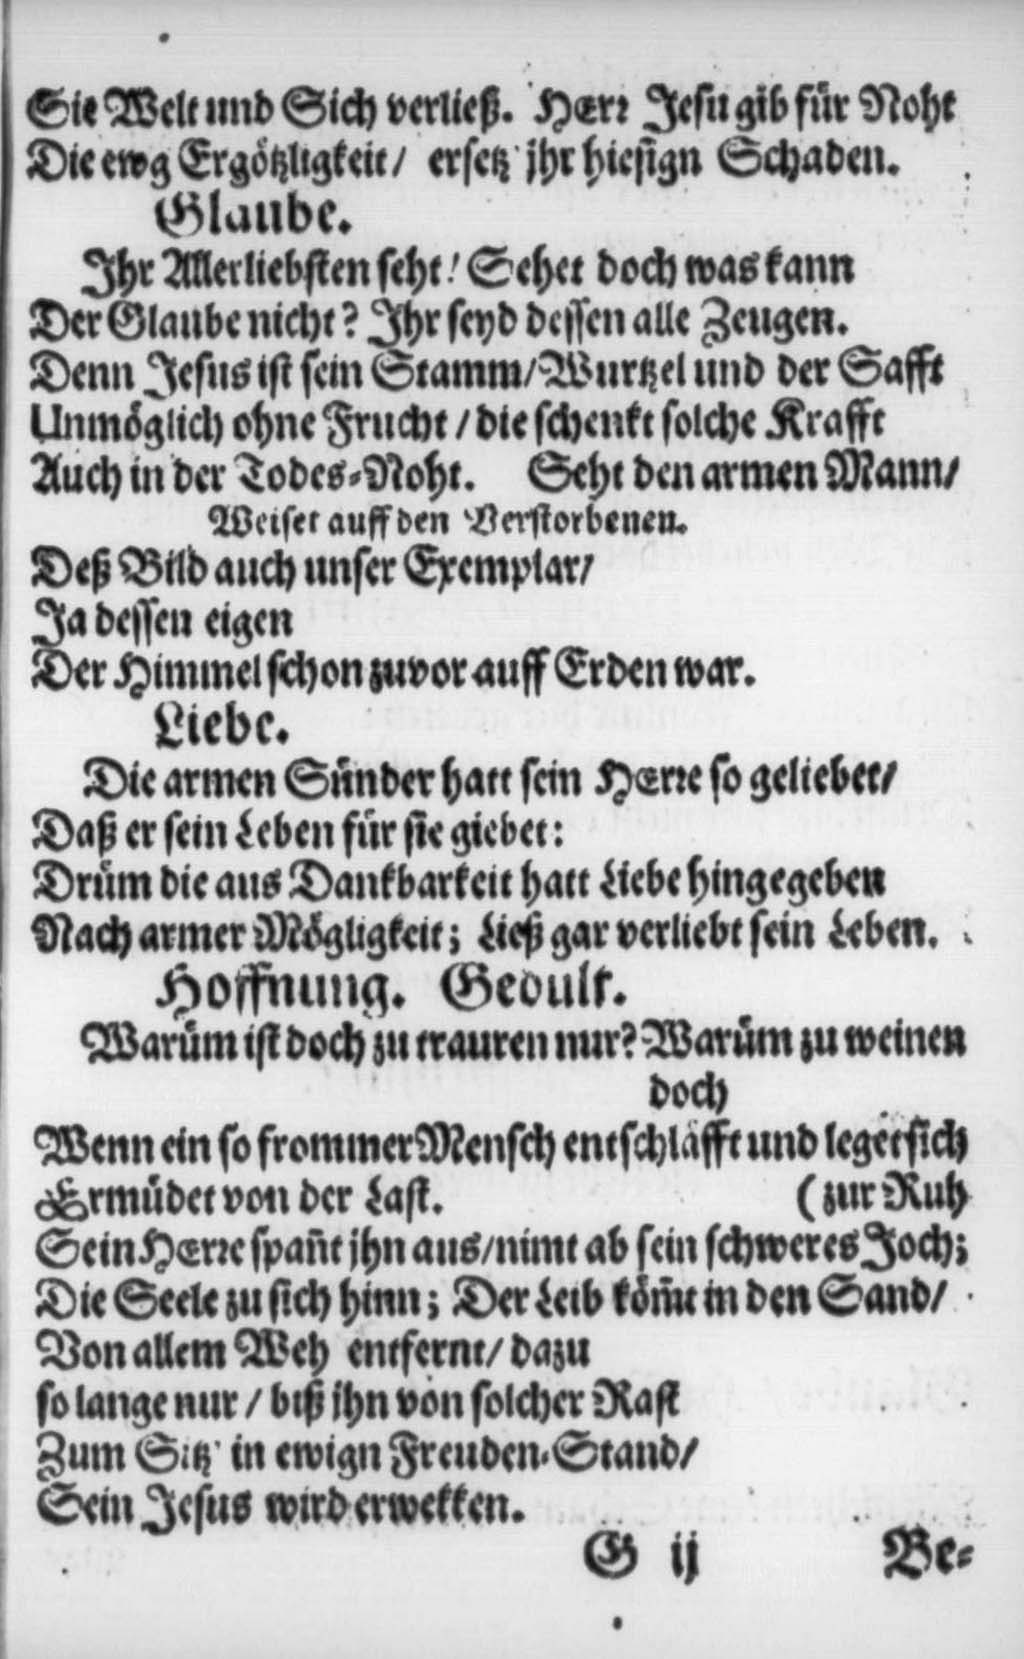 Sie Welt und Sich verließ. HErr Jesu gib für Noht
Die ewg Ergötzligkeit/ ersetz' jhr hiesign Schaden.
Glaube.
Jhr Allerliebsten seht! Sehet doch was kann
Der Glaube nicht? Jhr seyd dessen alle Zeugen.
Denn Jesus ist sein Stamm/ Wurtzel und der Safft
Unmöglich ohne Frucht / die schenkt solche Krafft
Auch in der Todes-Noht. Seht den armen Mann/
Weiset auff den Verstorbenen.
Deß Bild auch unser Exemplar/
Ja dessen eigen
Der Himmel schon zuvor auff Erden war.
Liebe.
Die armen Sünder hatt sein HErre so geliebet/
Daß er sein Leben für sie giebet:
Drüm die aus Dankbarkeit hatt Liebe hingegeben
Nach armer Mögligkeit; Ließ gar verliebt sein Leben.
Hoffnung. Gedult.
Warüm ist doch zu trauren nur? Warüm zu weinen
doch
Wenn ein so frommer Mensch entschläfft und leget sich
Ermüdet von der Last. (zur Ruh
Sein HErre spañt jhn aus/ nimt ab sein schweres Joch;
Die Seele zu sich hinn; Der Leib köm̃t in den Sand/
Von allem Weh entfernt/ dazu
so lange nur / biß jhn von solcher Rast
Zum Sitz' in ewign Freuden-Stand/
Sein Jesus wird erwekken.
G ij Be-